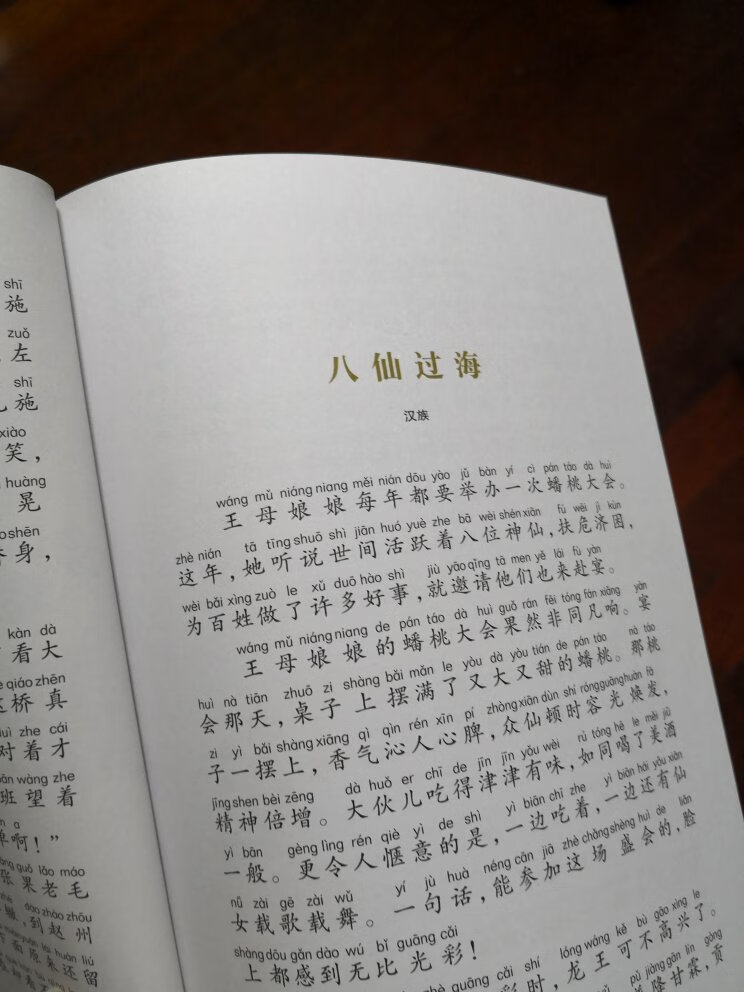 shī
施
zuǒ
左
shī
施
xiào
笑，
huàng
晃
shēn
身，
kàn dà
看大
qiáo zhēn
桥真
zhe cái
对着才
bān wàng zhe
班望着
a
啊！”
guǒ lǎo máo
张果老毛
dào zhào zhōu
，到赵州
yuán lái hái liú
原来还留
八仙过海
汉族
wáng mǔ niáng niang měi nián dōu yào jǔ bàn yí cì pán táo dà huì
王母娘娘每年都要举办一次蟠桃大会。
zhè nián tā tīng shuō shì jiān huó yuè zhe bā wèi shén xiān fú wēi jì kùn
这年，她听说世间活跃着八位神仙，扶危济困，
wèi bǎi xìng zuò le xǔ duō hǎo shì jiù yāo qǐng tā men yě lái fù yàn
为百姓做了许多好事，就邀请他们也来赴宴。
wáng mǔ niáng niang de pán táo dà huì guǒ rán fēi tóng fán xiǎng yàn
王母娘娘的蟠桃大会果然非同凡响。宴
huì nà tiān zhuō zi shàng bǎi mǎn le yòu dà yòu tián de pán táo nà táo
会那天，桌子上摆满了又大又甜的蟠桃。那桃
zi yì bǎi shàng xiāng qì qìn rén xīn pí zhòng xiān dùn shí róng guāng huàn fā
子一摆上，香气沁人心脾，众仙顿时容光焕发，
jīng shen bèi zēng dà huǒ er chī de jīn jīn yǒu wèi rú tóng hē le měi jiǔ
精神倍增。大伙儿吃得津津有味，如同喝了美酒
yì bān gèng lìng rén qiè yì de shì yì biān chī zhe yì biān hái yǒu xiān
一般。更令人惬意的是，一边吃着，一边还有仙
nǚ zài gē zài wǔ yí jù huà néng cān jiā zhè chǎng shèng huì de liǎn
女载歌载舞。一句话，能参加这场盛会的，脸
shàng dōu gǎn dào wú bǐ guāng cǎi
上都感到无比光彩！
guāng cǎi shí lóng wáng kě bù gāo xìng le
彩时，龙王可不高兴了。
pǔ jiàng gān lín gòng
降甘霖，贡